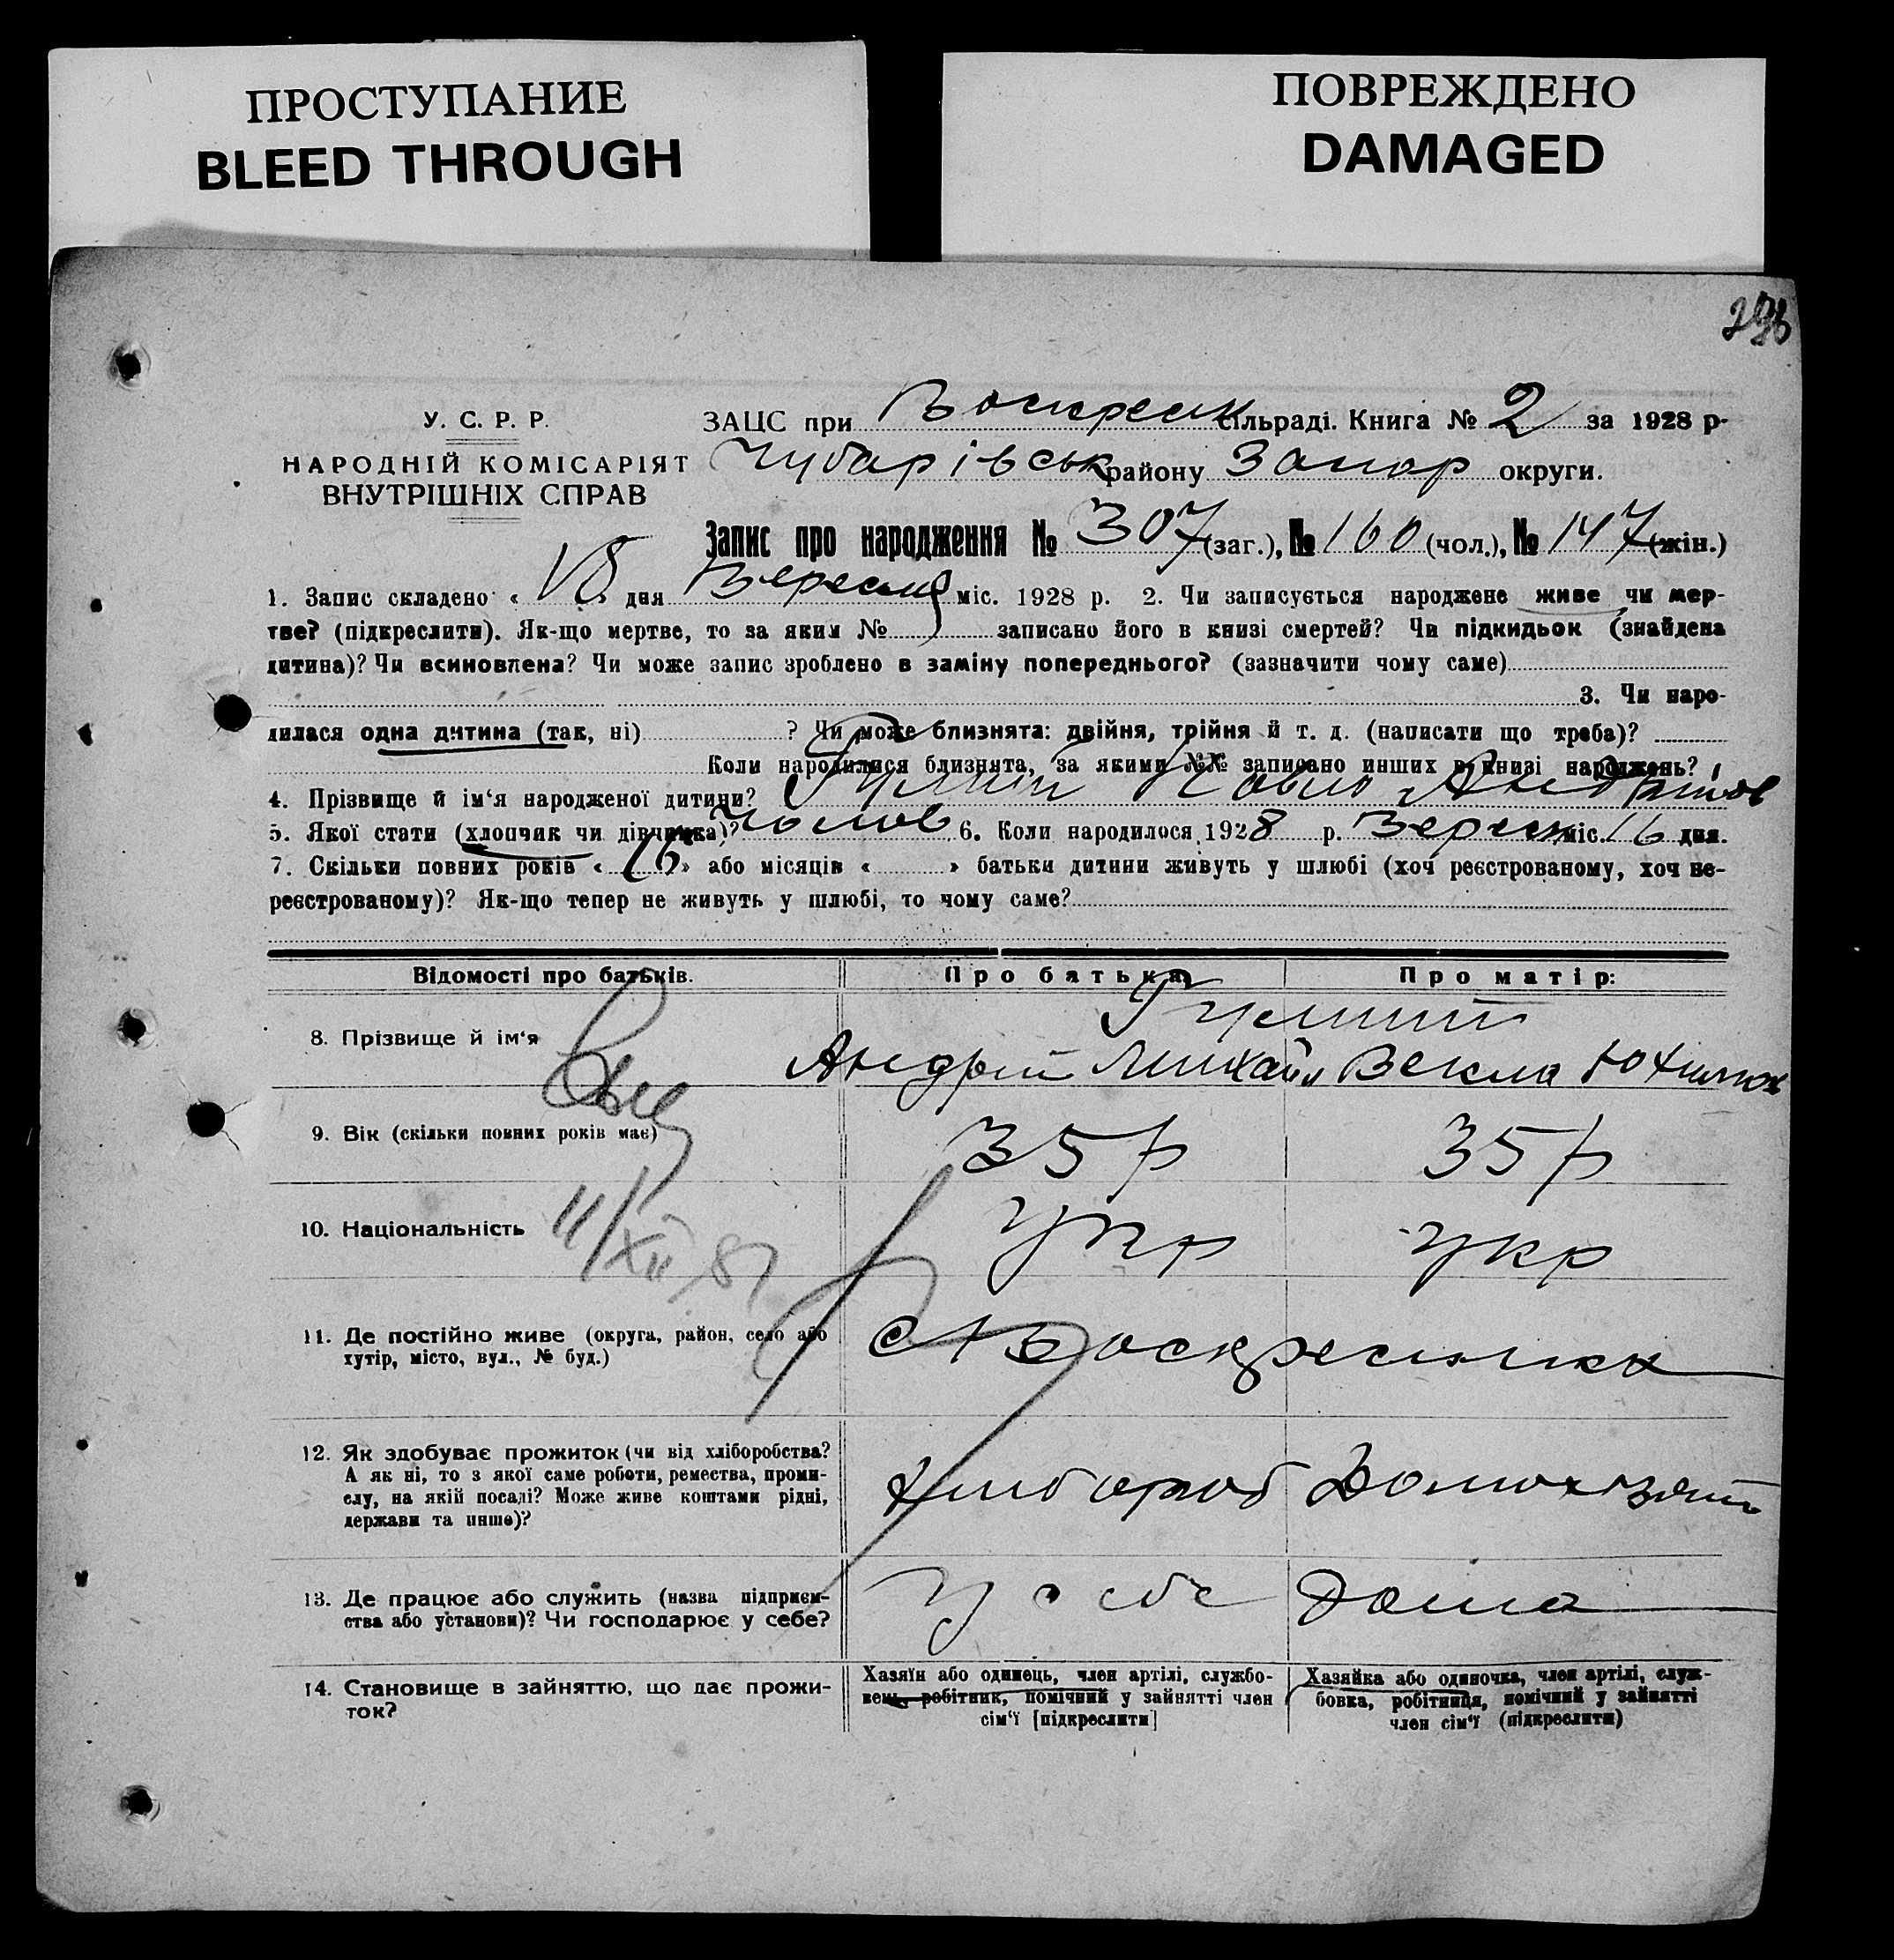 ПРОСТУПАНИЕ
BLEED THROUGH
ПОВРЕЖДЕНО
DAMAGED
У. С. Р. Р.
НАРОДНІЙ КОМІСАРІЯТ
ВНУТРІШНІХ СПРАВ
ЗАЦС при Воскресенк сільраді. Книга № 2 за 1928 р.
Чубарівськ району Запор округи.
Запис про народження № 307 (заг.), № 160 (чол.), № 147 (жін.)
1. Запис складено « 18 » дня Вересня міс. 1928 р. 2. Чи записується народжене живе чи мер-
тве? (підкреслити). Як-що мертве, то за яким № записано його в книзі смертей? Чи підкидьок (знайдена
дитина)? Чи всиновлена? Чи може запис зроблено в заміну попереднього? (зазначити чому саме)
3. Чи наро-
дилася одна дитина (так, ні) ? Чи може близнята: двійня, трійня й т. д. (написати що треба)?
Коли народилися близнята, за якими №№ записано инших в книзі народжень?
4. Прізвище й ім'я народженої дитини? Павло
5. Якої стати (хлопчик чи дівчинка)? чолов 6. Коли народилося 1928 р. Вересн міс. 16 дня.
7. Скільки повних років « » або місяців « » батьки дитини живуть у шлюбі (хоч реєстрованому, хоч не-
реєстрованому)? Як-що тепер не живуть у шлюбі, то чому саме?
Відомості про батьків. Про батька Про матір:
8. Прізвище й ім'я
Андрій Михайл Векла
9. Вік (скільки повних років має) 35 р 35 р
10. Національність укр укр
11/XII
11. Де постійно живе (округа, район, село або
хутір, місто, вул., № буд.) с Воскресенка
12. Як здобуває прожиток (чи від хліборобства?
А як ні, то з якої саме роботи, ремества, проми-
слу, на якій посаді? Може живе коштами рідні,
держави та инше)?
Хлібороб
13. Де працює або служить (назва підприєм-
ства або установи)? Чи господарює у себе?
у себе Дома
14. Становище в зайняттю, що дає прожи-
ток?
Хазяїн або одинець, член артілі, службо-
вець, робітник, помічний у зайнятті член
сім'ї [підкреслити]
Хазяйка або одиночка, член артілі, служ-
бовка, робітниця, помічний у зайнятті
член сім'ї (підкреслити)